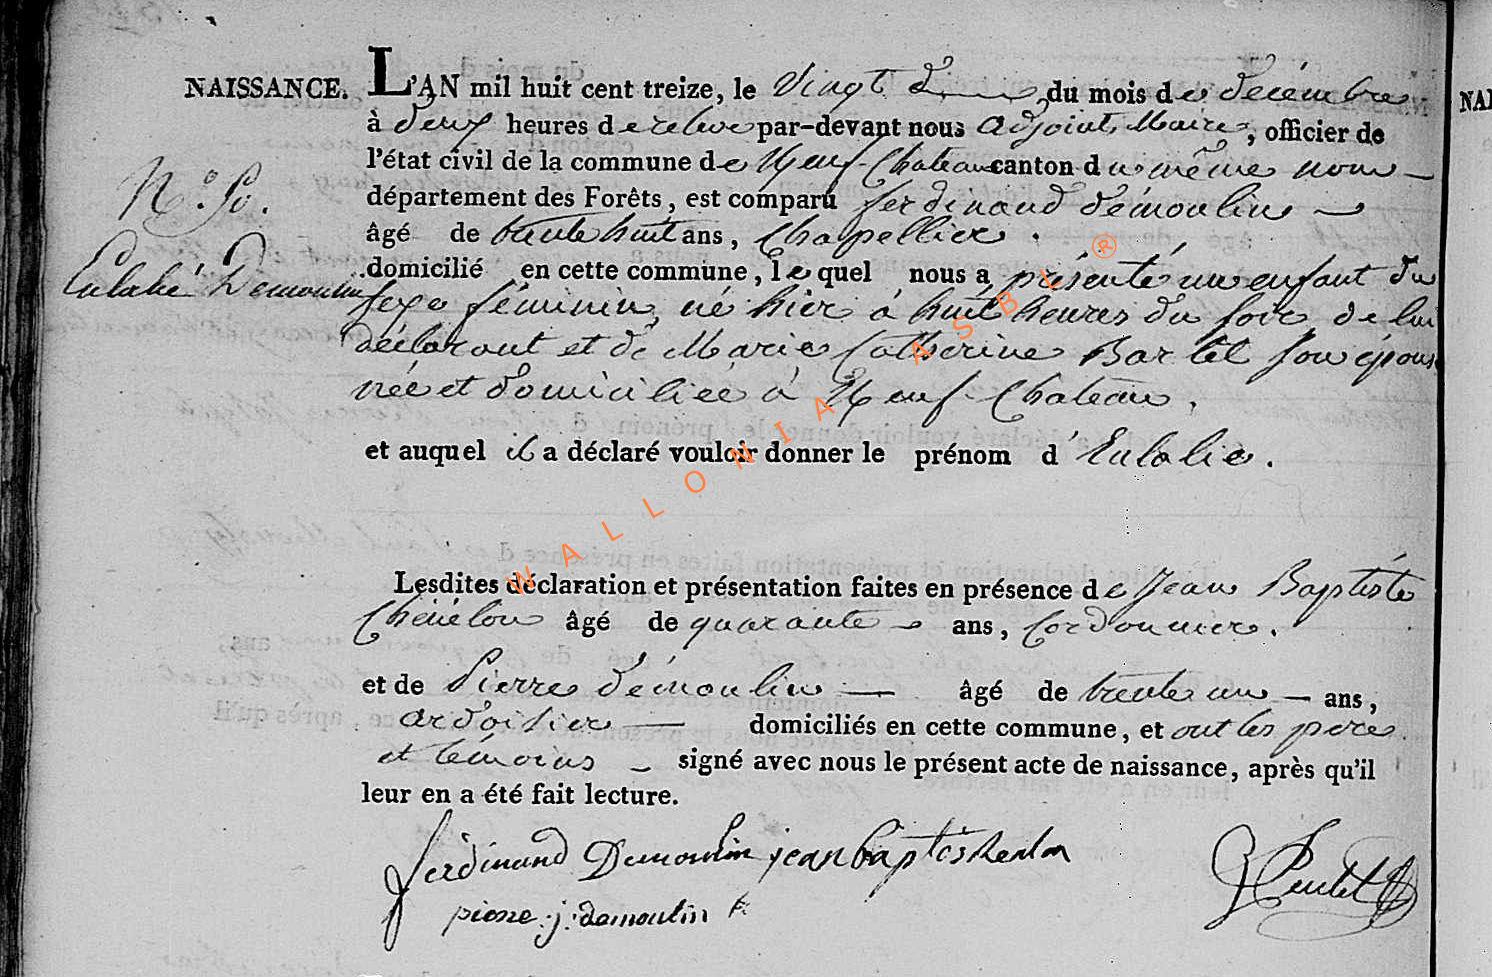 NAISSANCE. L'AN mil huit cent treize, le vingt du mois de décembre
à deux heures de relevé par-devant nous adjoint Maire, officier de
l'état civil de la commune de Neuf-Chateau canton du même nom
N.º 50. département des Forêts, est comparu ferdinand démoulin
âgé de trente huit ans, Chapellier.
Eulalie Demoulin domicilié en cette commune, lequel nous a présenté un enfant du
sexe féminin né hier à huit heures du soir de lui
déclarant et de Marie Catherine Bartel son épouse
née et domiciliée à Neuf-Chateau,
et auquel il a déclaré vouloir donner le prénom d'Eulalie.
Lesdites déclaration et présentation faites en présence de Jean Baptiste
âgé de quarante ans, Cordonnier.
et de Pierre démoulin âgé de trente un ans,
ardoisier domiciliés en cette commune, et ont les père
et temoins signé avec nous le présent acte de naissance, après qu'il
leur en a été fait lecture.
ferdinand Demoulin jean baptis
pierre j. demoulin
WALLONIA ASBL ®
NAI